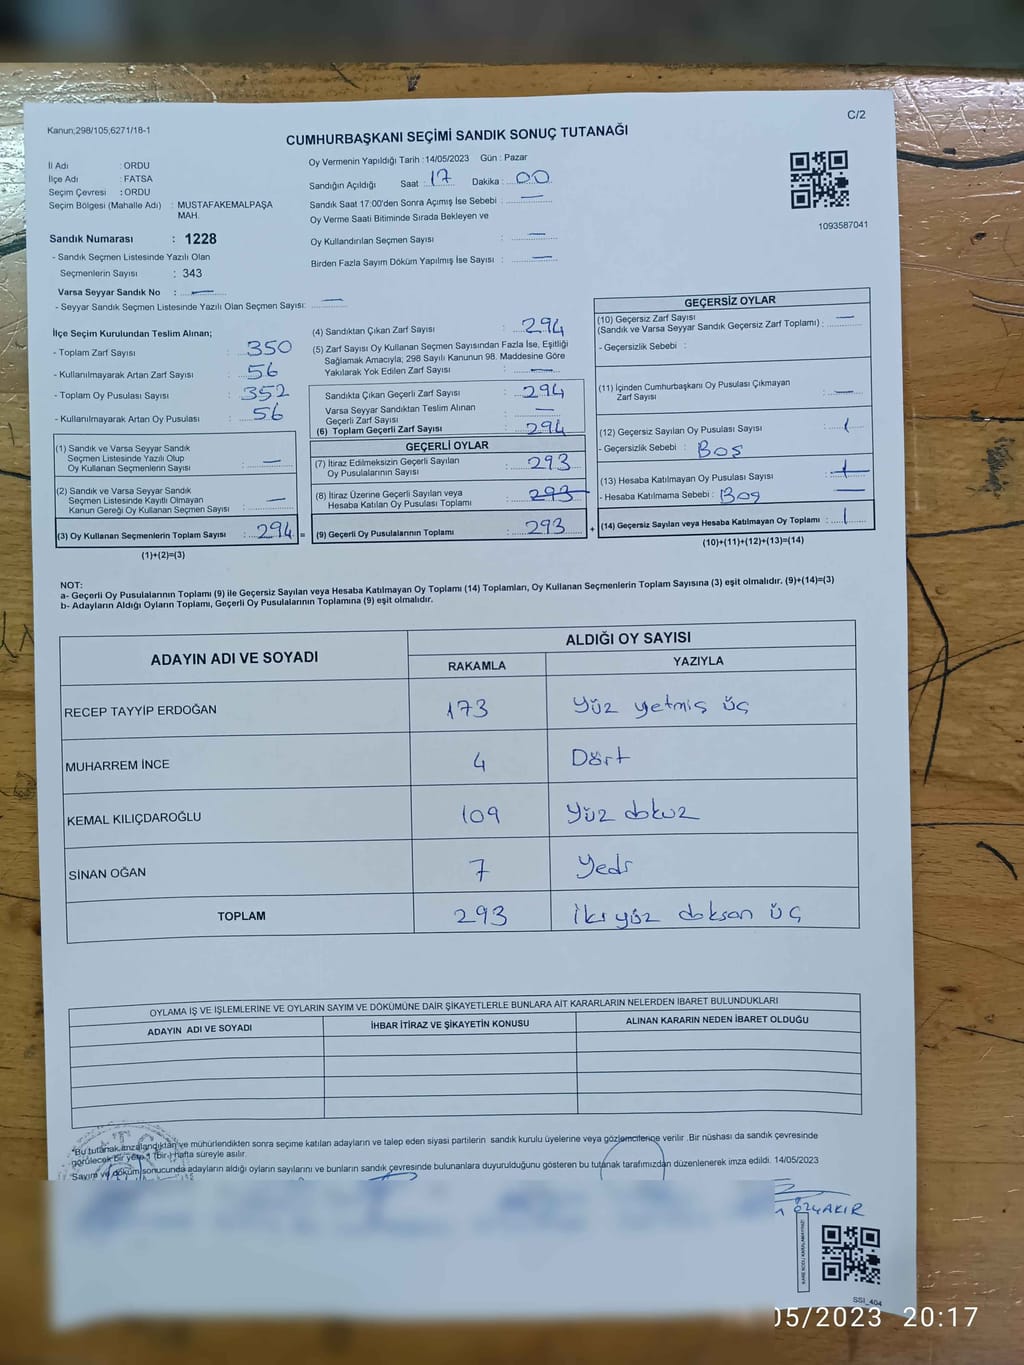 Kanun;298/105,6271/18-1
C/2
CUMHURBAŞKANI SEÇİMİ SANDIK SONUÇ TUTANAĞI
İl Adı : ORDU
İlçe Adı : FATSA
Seçim Çevresi : ORDU
Seçim Bölgesi (Mahalle Adı) : MUSTAFAKEMALPAŞA
MAH.
Sandık Numarası : 1228
- Sandık Seçmen Listesinde Yazılı Olan
Seçmenlerin Sayısı : 343
Varsa Seyyar Sandık No : —
- Seyyar Sandık Seçmen Listesinde Yazılı Olan Seçmen Sayısı: —
Oy Vermenin Yapıldığı Tarih :14/05/2023 Gün : Pazar
Sandığın Açıldığı Saat : 17 Dakika : 00
Sandık Saat 17:00'den Sonra Açımış İse Sebebi : —
Oy Verme Saati Bitiminde Sırada Bekleyen ve
Oy Kullandırılan Seçmen Sayısı : —
Birden Fazla Sayım Döküm Yapılmış İse Sayısı : —
1093587041
İlçe Seçim Kurulundan Teslim Alınan;
- Toplam Zarf Sayısı : 350
- Kullanılmayarak Artan Zarf Sayısı : 56
- Toplam Oy Pusulası Sayısı : 352
- Kullanılmayarak Artan Oy Pusulası : 56
(1) Sandık ve Varsa Seyyar Sandık
Seçmen Listesinde Yazılı Olup
Oy Kullanan Seçmenlerin Sayısı : —
(2) Sandık ve Varsa Seyyar Sandık
Seçmen Listesinde Kayıtlı Olmayan
Kanun Gereği Oy Kullanan Seçmen Sayısı : —
(3) Oy Kullanan Seçmenlerin Toplam Sayısı : 294 =
(1)+(2)=(3)
(4) Sandıktan Çıkan Zarf Sayısı : 294
(5) Zarf Sayısı Oy Kullanan Seçmen Sayısından Fazla İse, Eşitliği
Sağlamak Amacıyla; 298 Sayılı Kanunun 98. Maddesine Göre
Yakılarak Yok Edilen Zarf Sayısı : —
Sandıkta Çıkan Geçerli Zarf Sayısı : 294
Varsa Seyyar Sandıktan Teslim Alınan
Geçerli Zarf Sayısı : —
(6) Toplam Geçerli Zarf Sayısı : 294
GEÇERLİ OYLAR
(7) İtiraz Edilmeksizin Geçerli Sayılan
Oy Pusulalarının Sayısı : 293
(8) İtiraz Üzerine Geçerli Sayılan veya
Hesaba Katılan Oy Pusulası Toplamı : 293
(9) Geçerli Oy Pusulalarının Toplamı : 293 +
GEÇERSİZ OYLAR
(10) Geçersiz Zarf Sayısı
(Sandık ve Varsa Seyyar Sandık Geçersiz Zarf Toplamı) : —
- Geçersizlik Sebebi :
(11) İçinden Cumhurbaşkanı Oy Pusulası Çıkmayan
Zarf Sayısı : —
(12) Geçersiz Sayılan Oy Pusulası Sayısı : 1
- Geçersizlik Sebebi : Boş
(13) Hesaba Katılmayan Oy Pusulası Sayısı : 1
- Hesaba Katılmama Sebebi : Boş —
(14) Geçersiz Sayılan veya Hesaba Katılmayan Oy Toplamı : 1
(10)+(11)+(12)+(13)=(14)
NOT:
a- Geçerli Oy Pusulalarının Toplamı (9) ile Geçersiz Sayılan veya Hesaba Katılmayan Oy Toplamı (14) Toplamları, Oy Kullanan Seçmenlerin Toplam Sayısına (3) eşit olmalıdır. (9)+(14)=(3)
b- Adayların Aldığı Oyların Toplamı, Geçerli Oy Pusulalarının Toplamına (9) eşit olmalıdır.
ADAYIN ADI VE SOYADI
ALDIĞI OY SAYISI
RAKAMLA YAZIYLA
RECEP TAYYİP ERDOĞAN 173 Yüz yetmiş üç
MUHARREM İNCE 4 Dört
KEMAL KILIÇDAROĞLU 109 Yüz dokuz
SİNAN OĞAN 7 Yedi
TOPLAM 293 İki yüz doksan üç
OYLAMA İŞ VE İŞLEMLERİNE VE OYLARIN SAYIM VE DÖKÜMÜNE DAİR ŞİKAYETLERLE BUNLARA AİT KARARLARIN NELERDEN İBARET BULUNDUKLARI
ADAYIN ADI VE SOYADI İHBAR İTİRAZ VE ŞİKAYETİN KONUSU ALINAN KARARIN NEDEN İBARET OLDUĞU
"Bu tutanak imzalandıktan ve mühürlendikten sonra seçime katılan adayların ve talep eden siyasi partilerin sandık kurulu üyelerine veya gözlemcilerine verilir .Bir nüshası da sandık çevresinde
görülecek bir yere 1 (bir) hafta süreyle asılır.
Sayım ve döküm sonucunda adayların aldığı oyların sayılarını ve bunların sandık çevresinde bulunanlara duyurulduğunu gösteren bu tutanak tarafımızdan düzenlenerek imza edildi. 14/05/2023
ÖZÇAKIR
SSI_404
05/2023 20:17